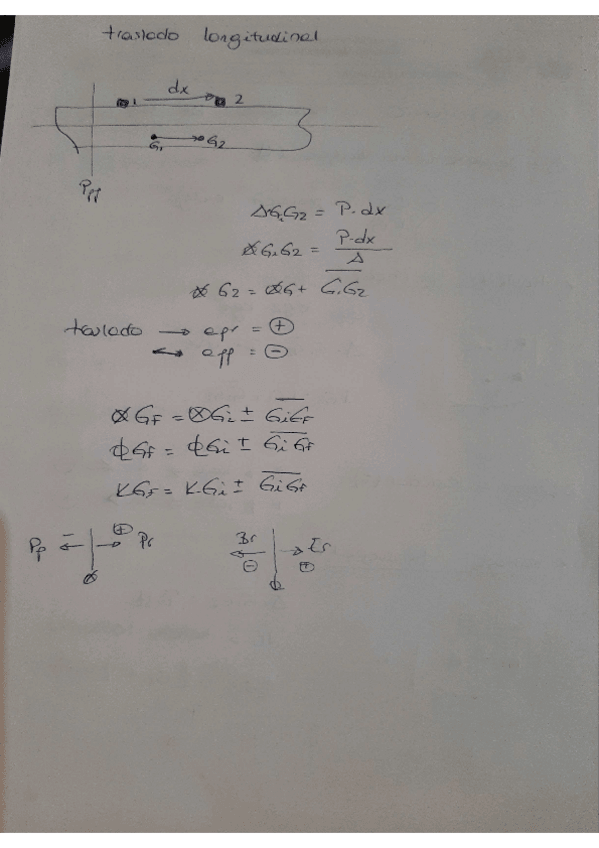 traslado longitudinal
dx
1 2
G₁ G₂
Ppp
ΔG₁G₂ = P·dx
⦻G₁G₂ = P·dx / Δ
⦻G₂ = ⦻G + G₁G₂
traslado → apr = ⊕
↔ app = ⊖
⦻Gf = ⦻Gi ± GiGf
ɸGf = ɸGi ± GiGf
KGf = K·Gi ± GiGf
Pp − ⊕ Pr Br Er
⦻ ⊖ ⊕